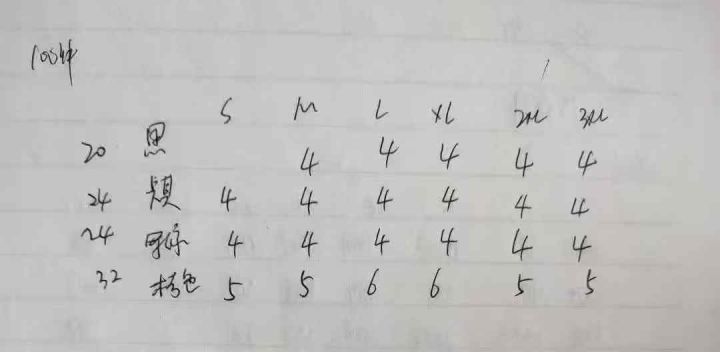 S M L XL 2XL 3XL
20 黑 4 4 4 4 4
24 4 4 4 4 4 4
24 4 4 4 4 4 4
32 色 5 5 6 6 5 5